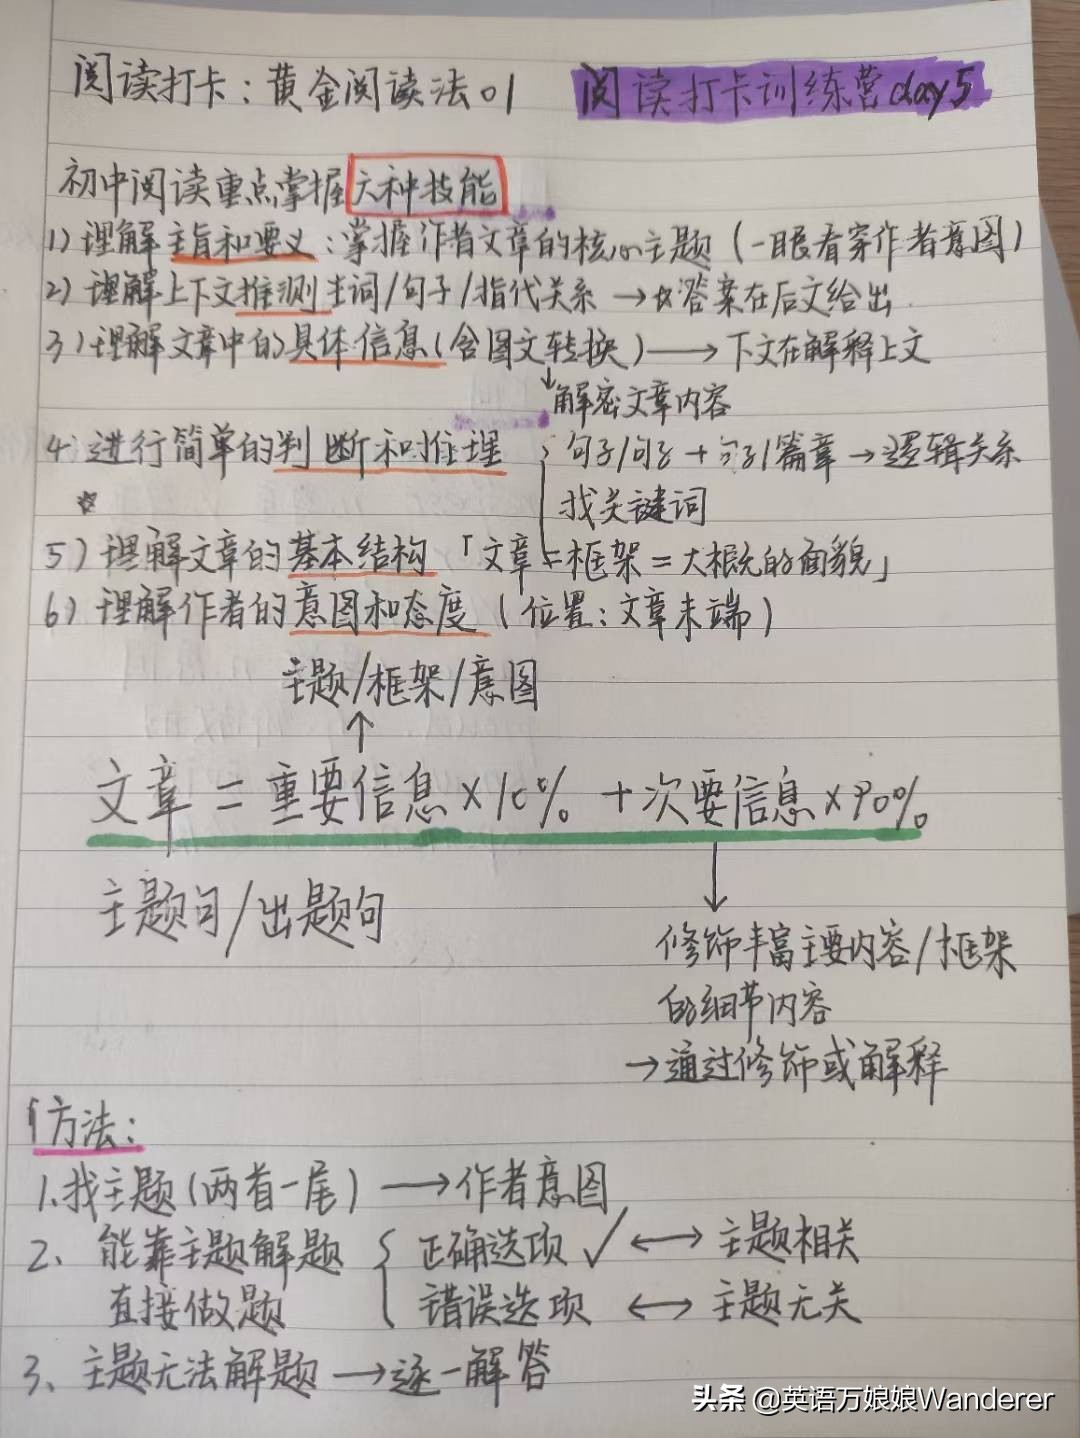 阅读打卡：黄金阅读法01 阅读打卡训练营day5
初中阅读重点掌握六种技能
1）理解主旨和要义：掌握作者文章的核心主题（一眼看穿作者意图）
2）理解上下文推测生词/句子/指代关系→答案在后文给出
3）理解文章中的具体信息（含图文转换）→下文在解释上文
↓解密文章内容
4）进行简单的判断和推理 { 句子/句子+句子/篇章→逻辑关系
☆ 找关键词
5）理解文章的基本结构「文章=框架=大概的面貌」
6）理解作者的意图和态度（位置：文章末端）
主题/框架/意图
↑
文章=重要信息×10%+次要信息×90%
↓
主题句/出题句
修饰丰富主要内容/框架
的细节内容
→通过修饰或解释
方法：
1.找主题（两首一尾）→作者意图
2、能靠主题解题 { 正确选项✓↔主题相关
直接做题 错误选项↔主题无关
3、主题无法解题→逐一解答
头条 @英语万娘娘Wanderer